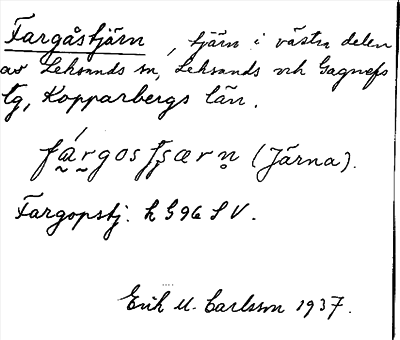 Fargåstjärn, tjärn i västra delen
av Leksands sn, Leksands och Gagnefs
tg, Kopparbergs län.
(Järna).
Fargopstj. k G96 SV.
Erik M. Carlsson 1937.